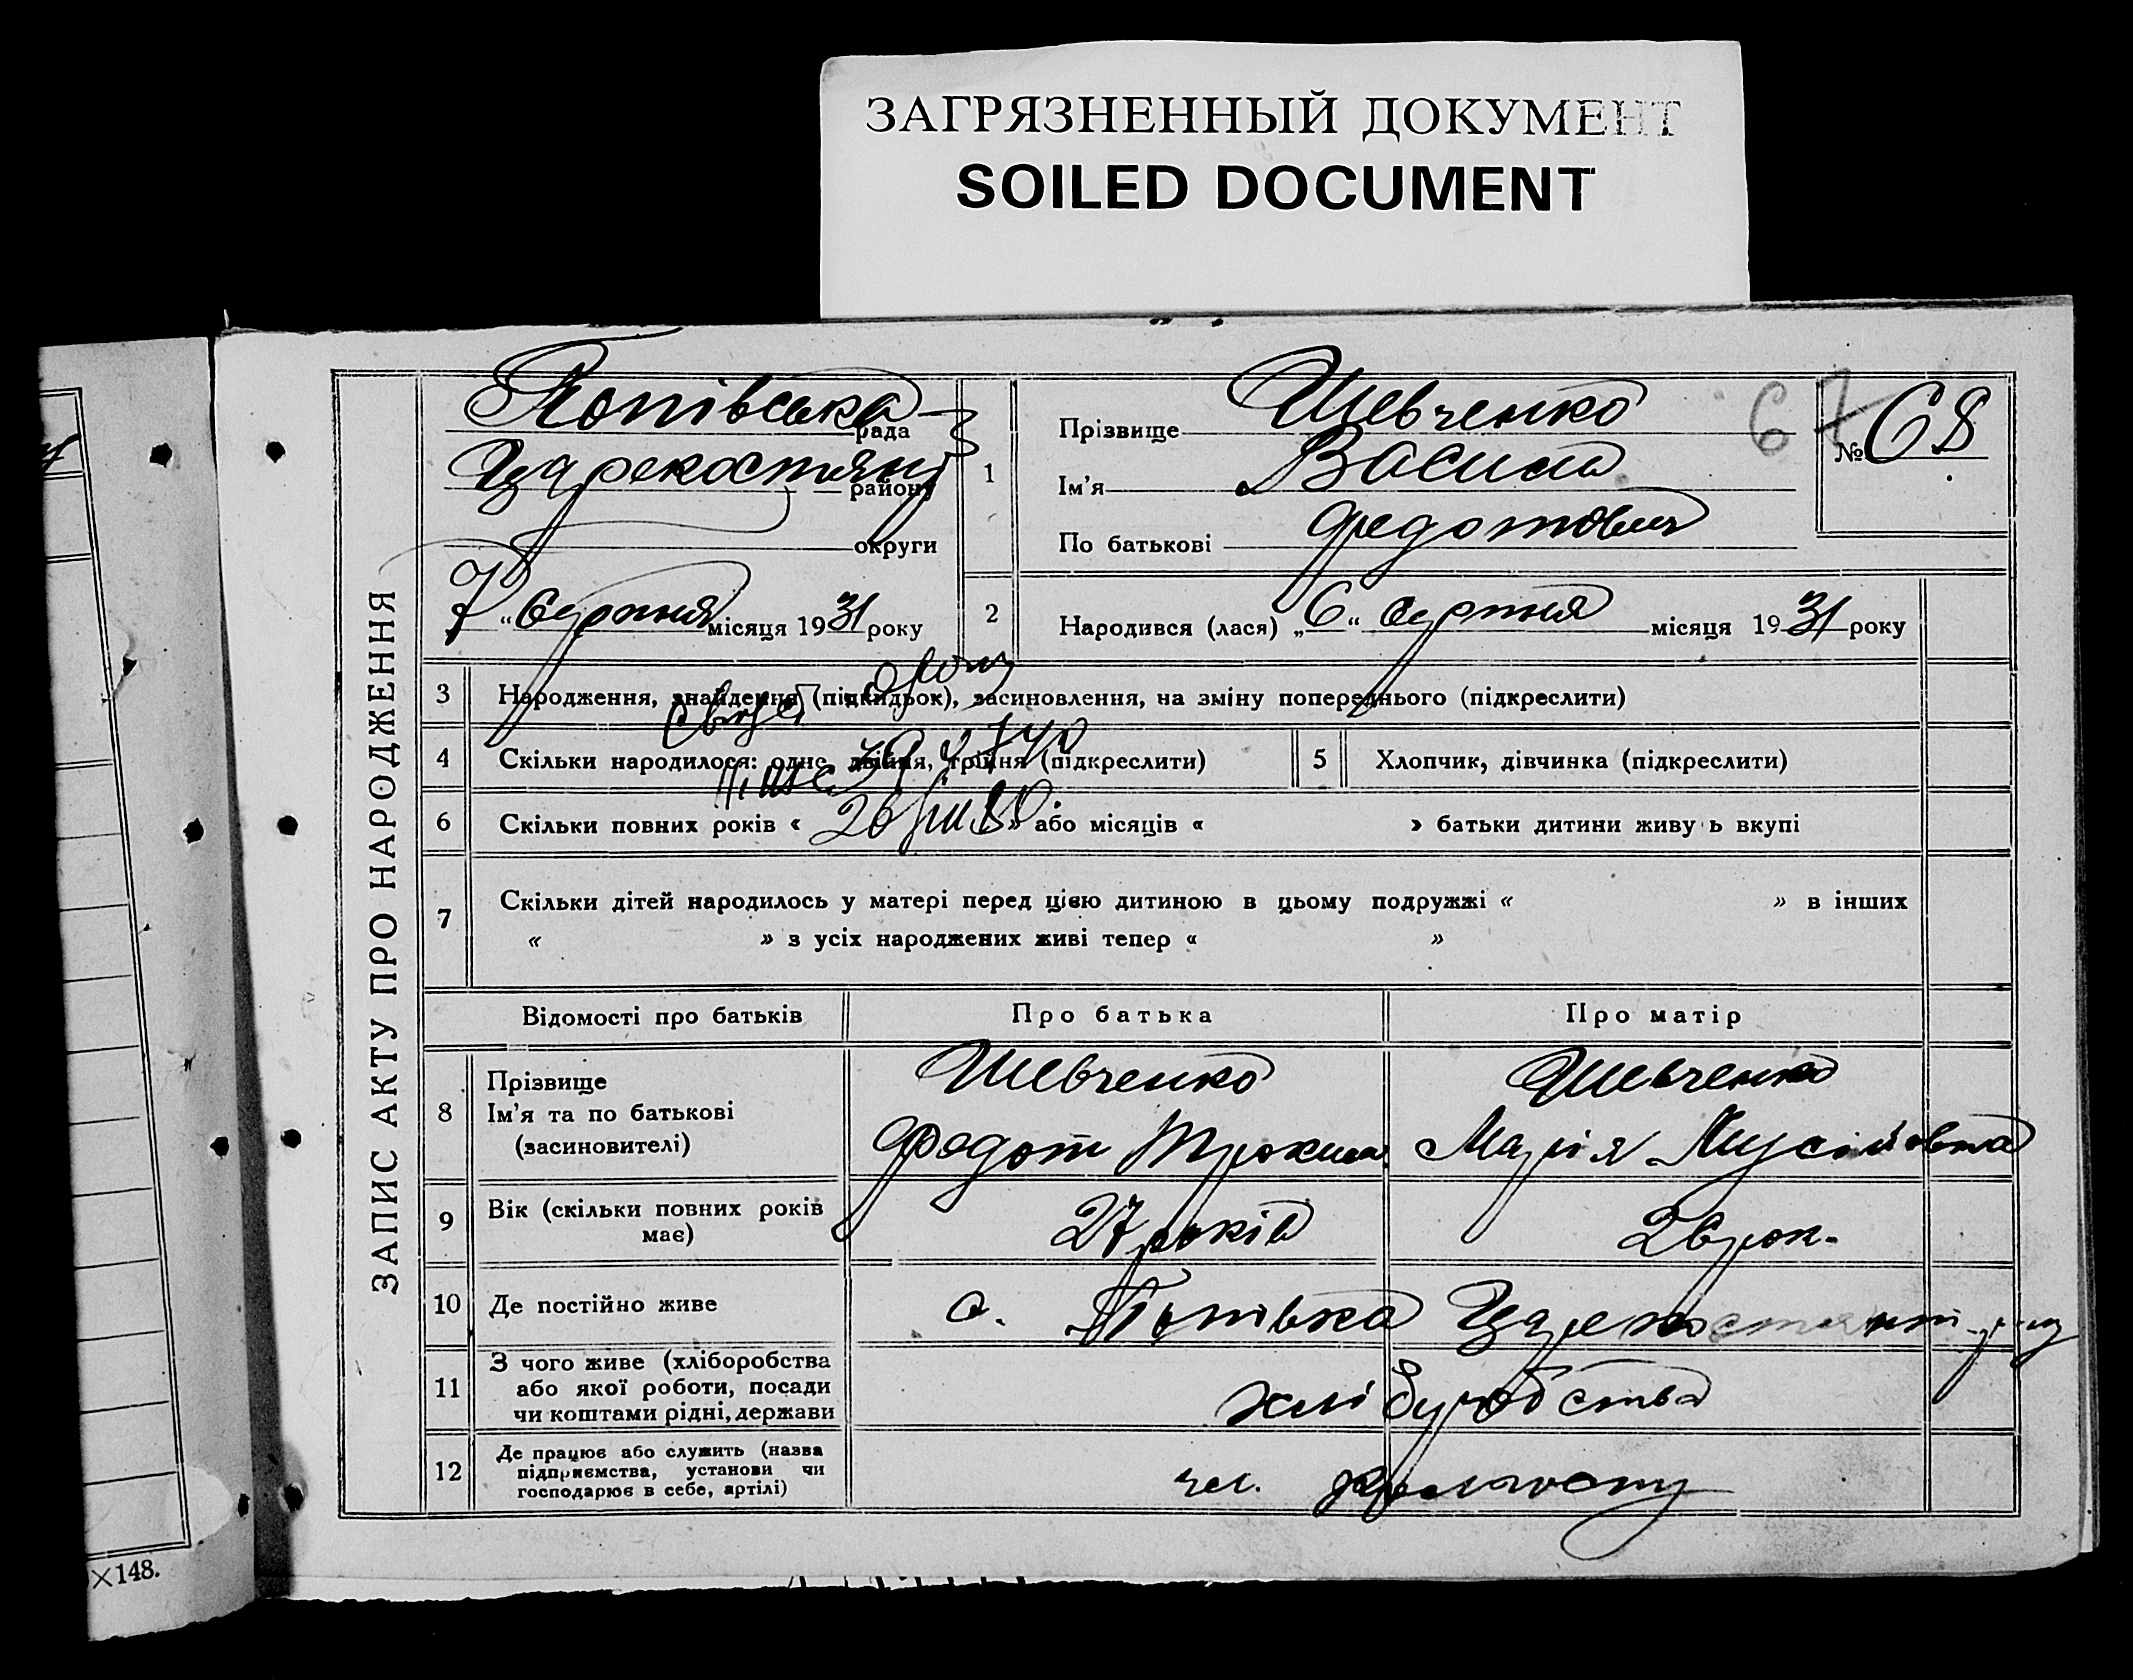 ЗАГРЯЗНЕННЫЙ ДОКУМЕНТ
SOILED DOCUMENT
ЗАПИС АКТУ ПРО НАРОДЖЕННЯ
Попівська рада
району
округи
7 " Серпня місяця 1931 року
67
№ 68
1 Прізвище Шевченко
Ім'я Василь
По батькові Федотович
2 Народився (лася) „6“ Серпня місяця 1931 року
3 Народження, знайдення (підкидьок), засиновлення, на зміну попереднього (підкреслити)
4 Скільки народилося: одне, двійня, трійня (підкреслити)
5 Хлопчик, дівчинка (підкреслити)
6 Скільки повних років « » або місяців « » батьки дитини живуть вкупі
7 Скільки дітей народилось у матері перед цією дитиною в цьому подружжі « » в інших
« » з усіх народжених живі тепер « »
Відомості про батьків Про батька Про матір
8 Прізвище Ім'я та по батькові (засновителі) Шевченко Федот Шевченко Марія Мусіївна
9 Вік (скільки повних років має) 27 років 26 рок.
10 Де постійно живе с. Попівка
11 З чого живе (хліборобства або якої роботи, посади чи коштами рідні, держави хліборобства
12 Де працює або служить (назва підприємства, установи чи господарює в себе, артілі) чл. колгоспу
×148.